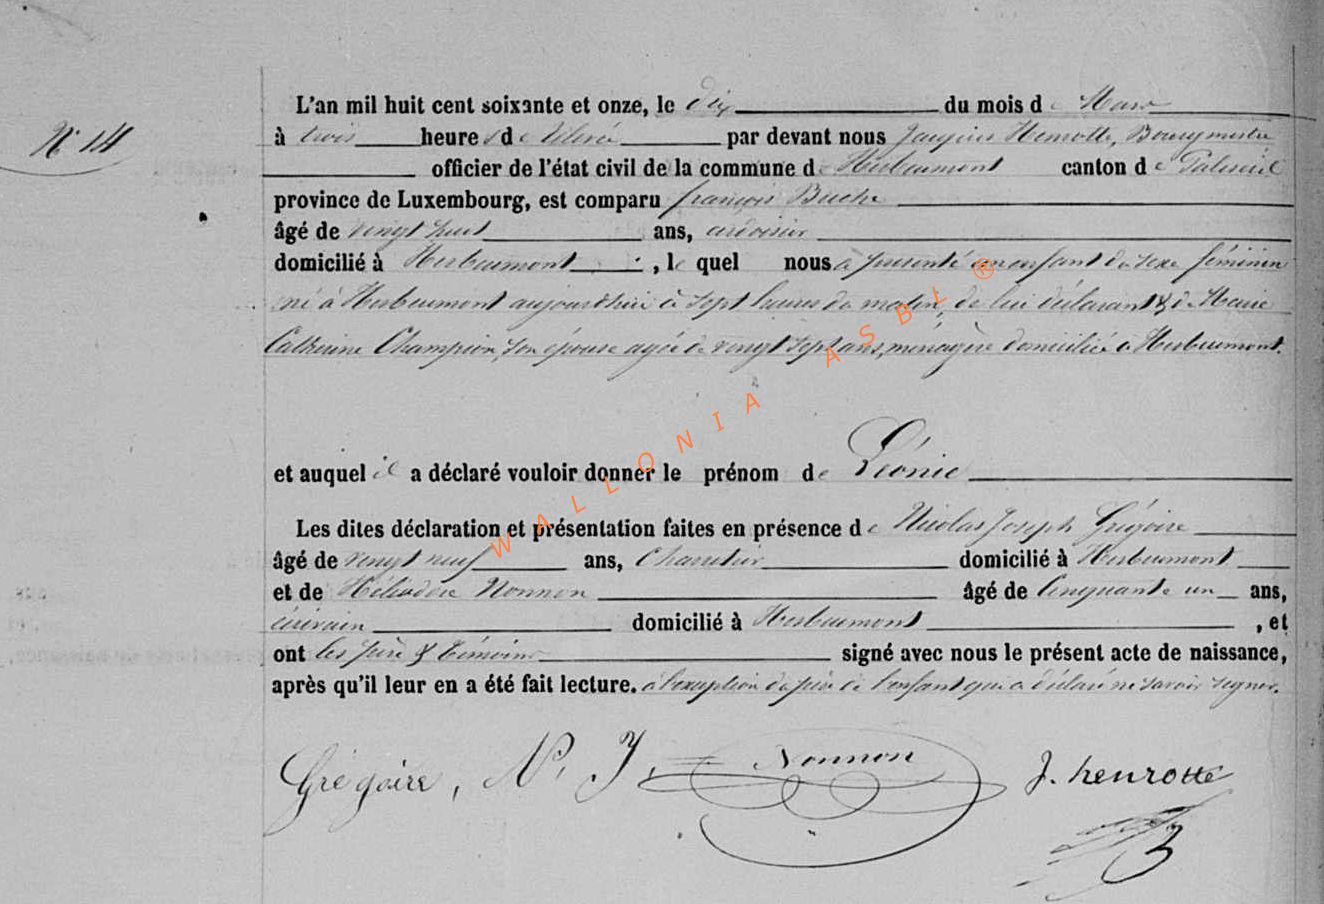 N° 14
L'an mil huit cent soixante et onze, le dix du mois de Mars
à trois heures de relevée par devant nous Jacques Henrotte, Bourgmestre
officier de l'état civil de la commune de Herbeumont canton de Paliseul
province de Luxembourg, est comparu françois Buche
âgé de vingt huit ans, ardoisier
domicilié à Herbeumont, le quel nous a présenté un enfant du sexe féminin
né à Herbeumont aujourd'hui à sept heures du matin, de lui déclarant & de Marie
Catherine Champion, son épouse agée de vingt sept ans, ménagère domiciliée à Herbeumont.
et auquel il a déclaré vouloir donner le prénom de Léonie
Les dites déclaration et présentation faites en présence de Nicolas Joseph Grégoire
âgé de vingt neuf ans, Charretier domicilié à Herbeumont
et de Héliodore Nonnon âgé de Cinquante un ans,
écrivain domicilié à Herbeumont, et
ont les père & témoins signé avec nous le présent acte de naissance,
après qu'il leur en a été fait lecture. à l'exception du père de l'enfant qui a déclaré ne savoir signer.
Grégoire, N. J. Nonnon J. henrotte
WALLONIA ASBL ®